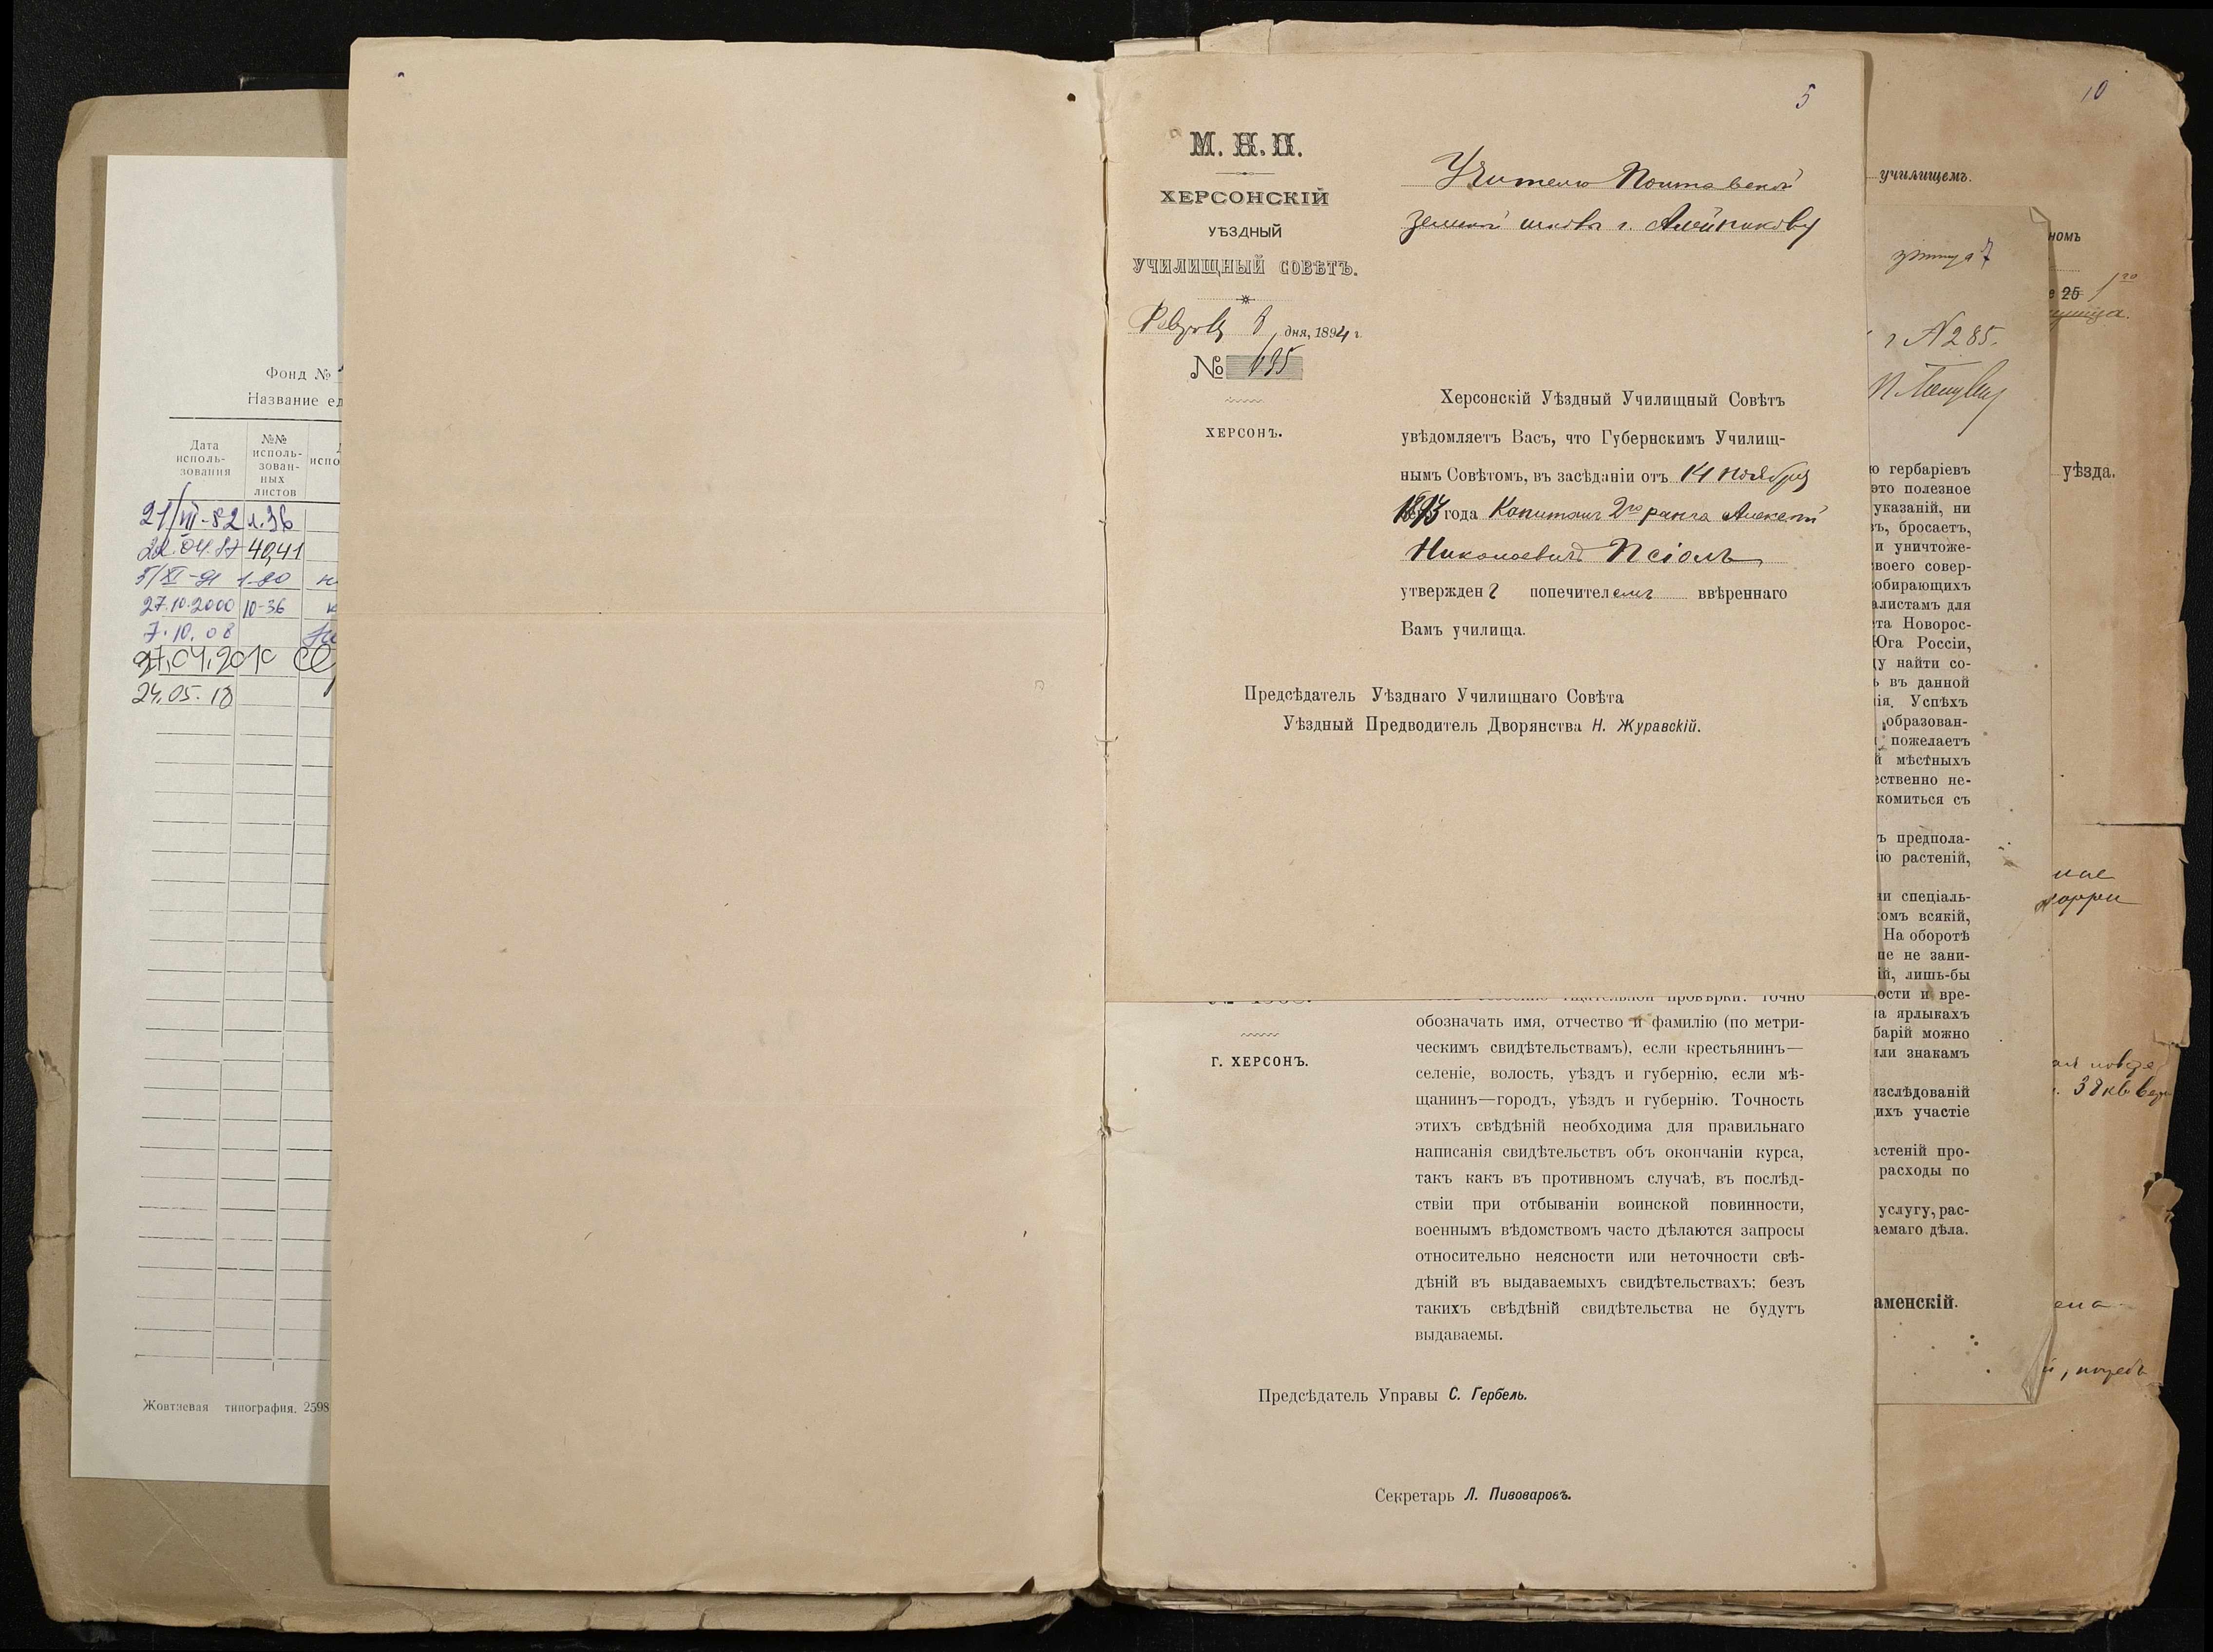 Фонд №
Название ед
Дата
исполь-
зования
№№
исполь-
зован-
ных
листов
испо
21/VII-82 л.36
22.04.87 40,41
5/XI-91 1-20
27.10.2000 10-36
7.10.08
27.04.2010
24.05.18
Жовтневая типография. 2598
5
М. Н. П.
ХЕРСОНСКІЙ
УѢЗДНЫЙ
УЧИЛИЩНЫЙ СОВѢТЪ.
8 дня, 1894 г.
№ 695
ХЕРСОНЪ.
Учителю
г. Алейникову
Херсонскій Уѣздный Училищный Совѣтъ
увѣдомляетъ Васъ, что Губернскимъ Училищ-
нымъ Совѣтомъ, въ засѣданіи отъ 14 ноября
1893 года Капитанъ 2го ранга Алексѣй
Николаевичъ Псіолъ
утвержденъ попечителемъ ввѣреннаго
Вамъ училища.
Предсѣдатель Уѣзднаго Училищнаго Совѣта
Уѣздный Предводитель Дворянства Н. Журавскій.
провѣрки: точно
обозначать имя, отчество и фамилію (по метри-
ческимъ свидѣтельствамъ), если крестьянинъ—
селеніе, волость, уѣздъ и губернію, если мѣ-
щанинъ—городъ, уѣздъ и губернію. Точность
этихъ свѣдѣній необходима для правильнаго
написанія свидѣтельствъ объ окончаніи курса,
такъ какъ въ противномъ случаѣ, въ послѣд-
ствіи при отбываніи воинской повинности,
военнымъ вѣдомствомъ часто дѣлаются запросы
относительно неясности или неточности свѣ-
дѣній въ выдаваемыхъ свидѣтельствахъ: безъ
такихъ свѣдѣній свидѣтельства не будутъ
выдаваемы.
Г. ХЕРСОНЪ.
Предсѣдатель Управы С. Гербель.
Секретарь Л. Пивоваровъ.
г N 285.
ю гербаріевъ
это полезное
указаній, ни
ъ, бросаетъ,
и уничтоже-
воего совер-
обирающихъ
алистамъ для
та Новорос-
Юга Россіи,
у найти со-
ь въ данной
ія. Успѣхъ
образован-
пожелаетъ
й мѣстныхъ
ественно не-
комиться съ
ъ предпола-
ію растеній,
и спеціаль-
омъ всякій,
На оборотѣ
не не зани-
ій, лишь-бы
ости и вре-
а ярлыкахъ
барій можно
ли знакамъ
изслѣдованій
ихъ участіе
астеній про-
расходы по
услугу, рас-
аемаго дѣла.
аменскій.
10
училищемъ.
номъ
е 25 1го
уѣзда.